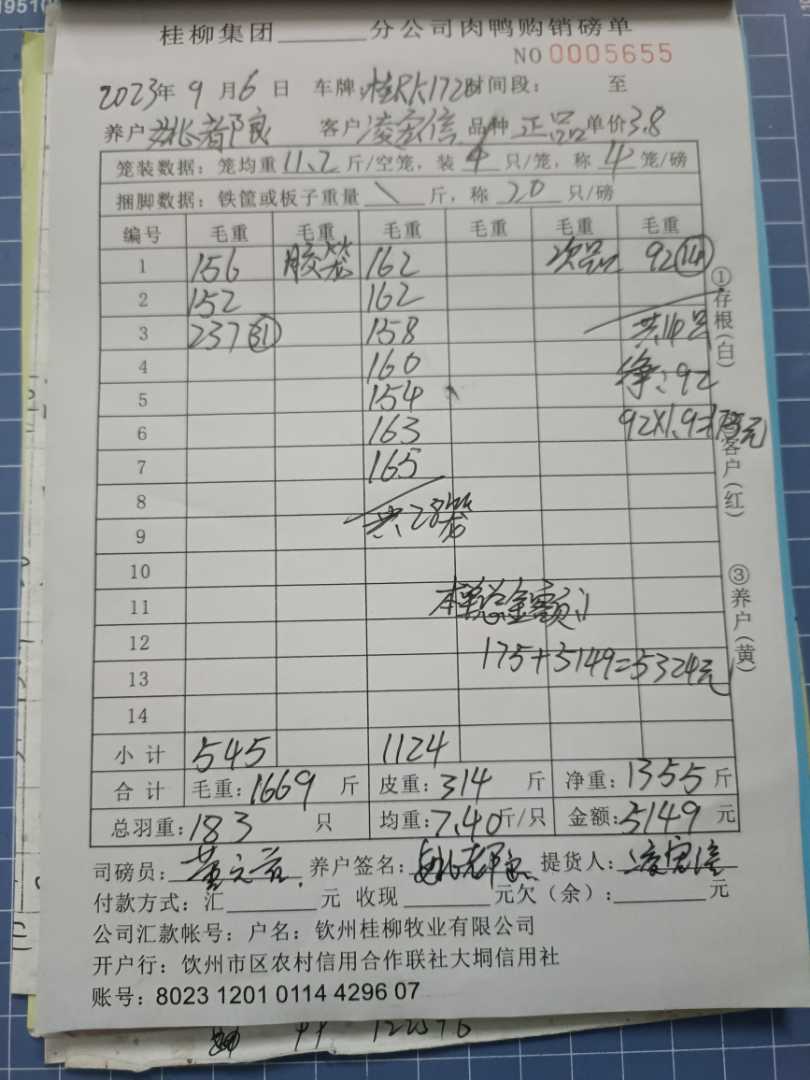 桂柳集团______分公司肉鸭购销磅单
NO 0005655
2023年 9月6日 车牌:桂R 172 时间段: 至
养户 客户 凌宏信 品种 正品 单价3.8
笼装数据:笼均重 11.2 斤/空笼,装 4 只/笼,称 4 笼/磅
捆脚数据:铁筐或板子重量 \ 斤,称 20 只/磅
编号 毛重 毛重 毛重 毛重 毛重 毛重
1 156 胶笼 162 次品 92(14)
2 152 162
3 237(31) 158 共14只
4 160 净:92
5 154
6 163 92×1.9=175元
7 165
8
9 共28笼
10
11 本单总金额:
12 175+5149=5324元
13
14
小计 545 1124
合计 毛重:1669 斤 皮重:314 斤 净重:1355 斤
总羽重:183 只 均重:7.40斤/只 金额:5149 元
司磅员: 养户签名: 提货人:凌宏信
付款方式:汇______元 收现______元欠(余):______元
公司汇款帐号:户名:钦州桂柳牧业有限公司
开户行:钦州市区农村信用合作联社大垌信用社
账号:8023 1201 0114 4296 07
①存根(白)
客户(红)
③养户(黄)